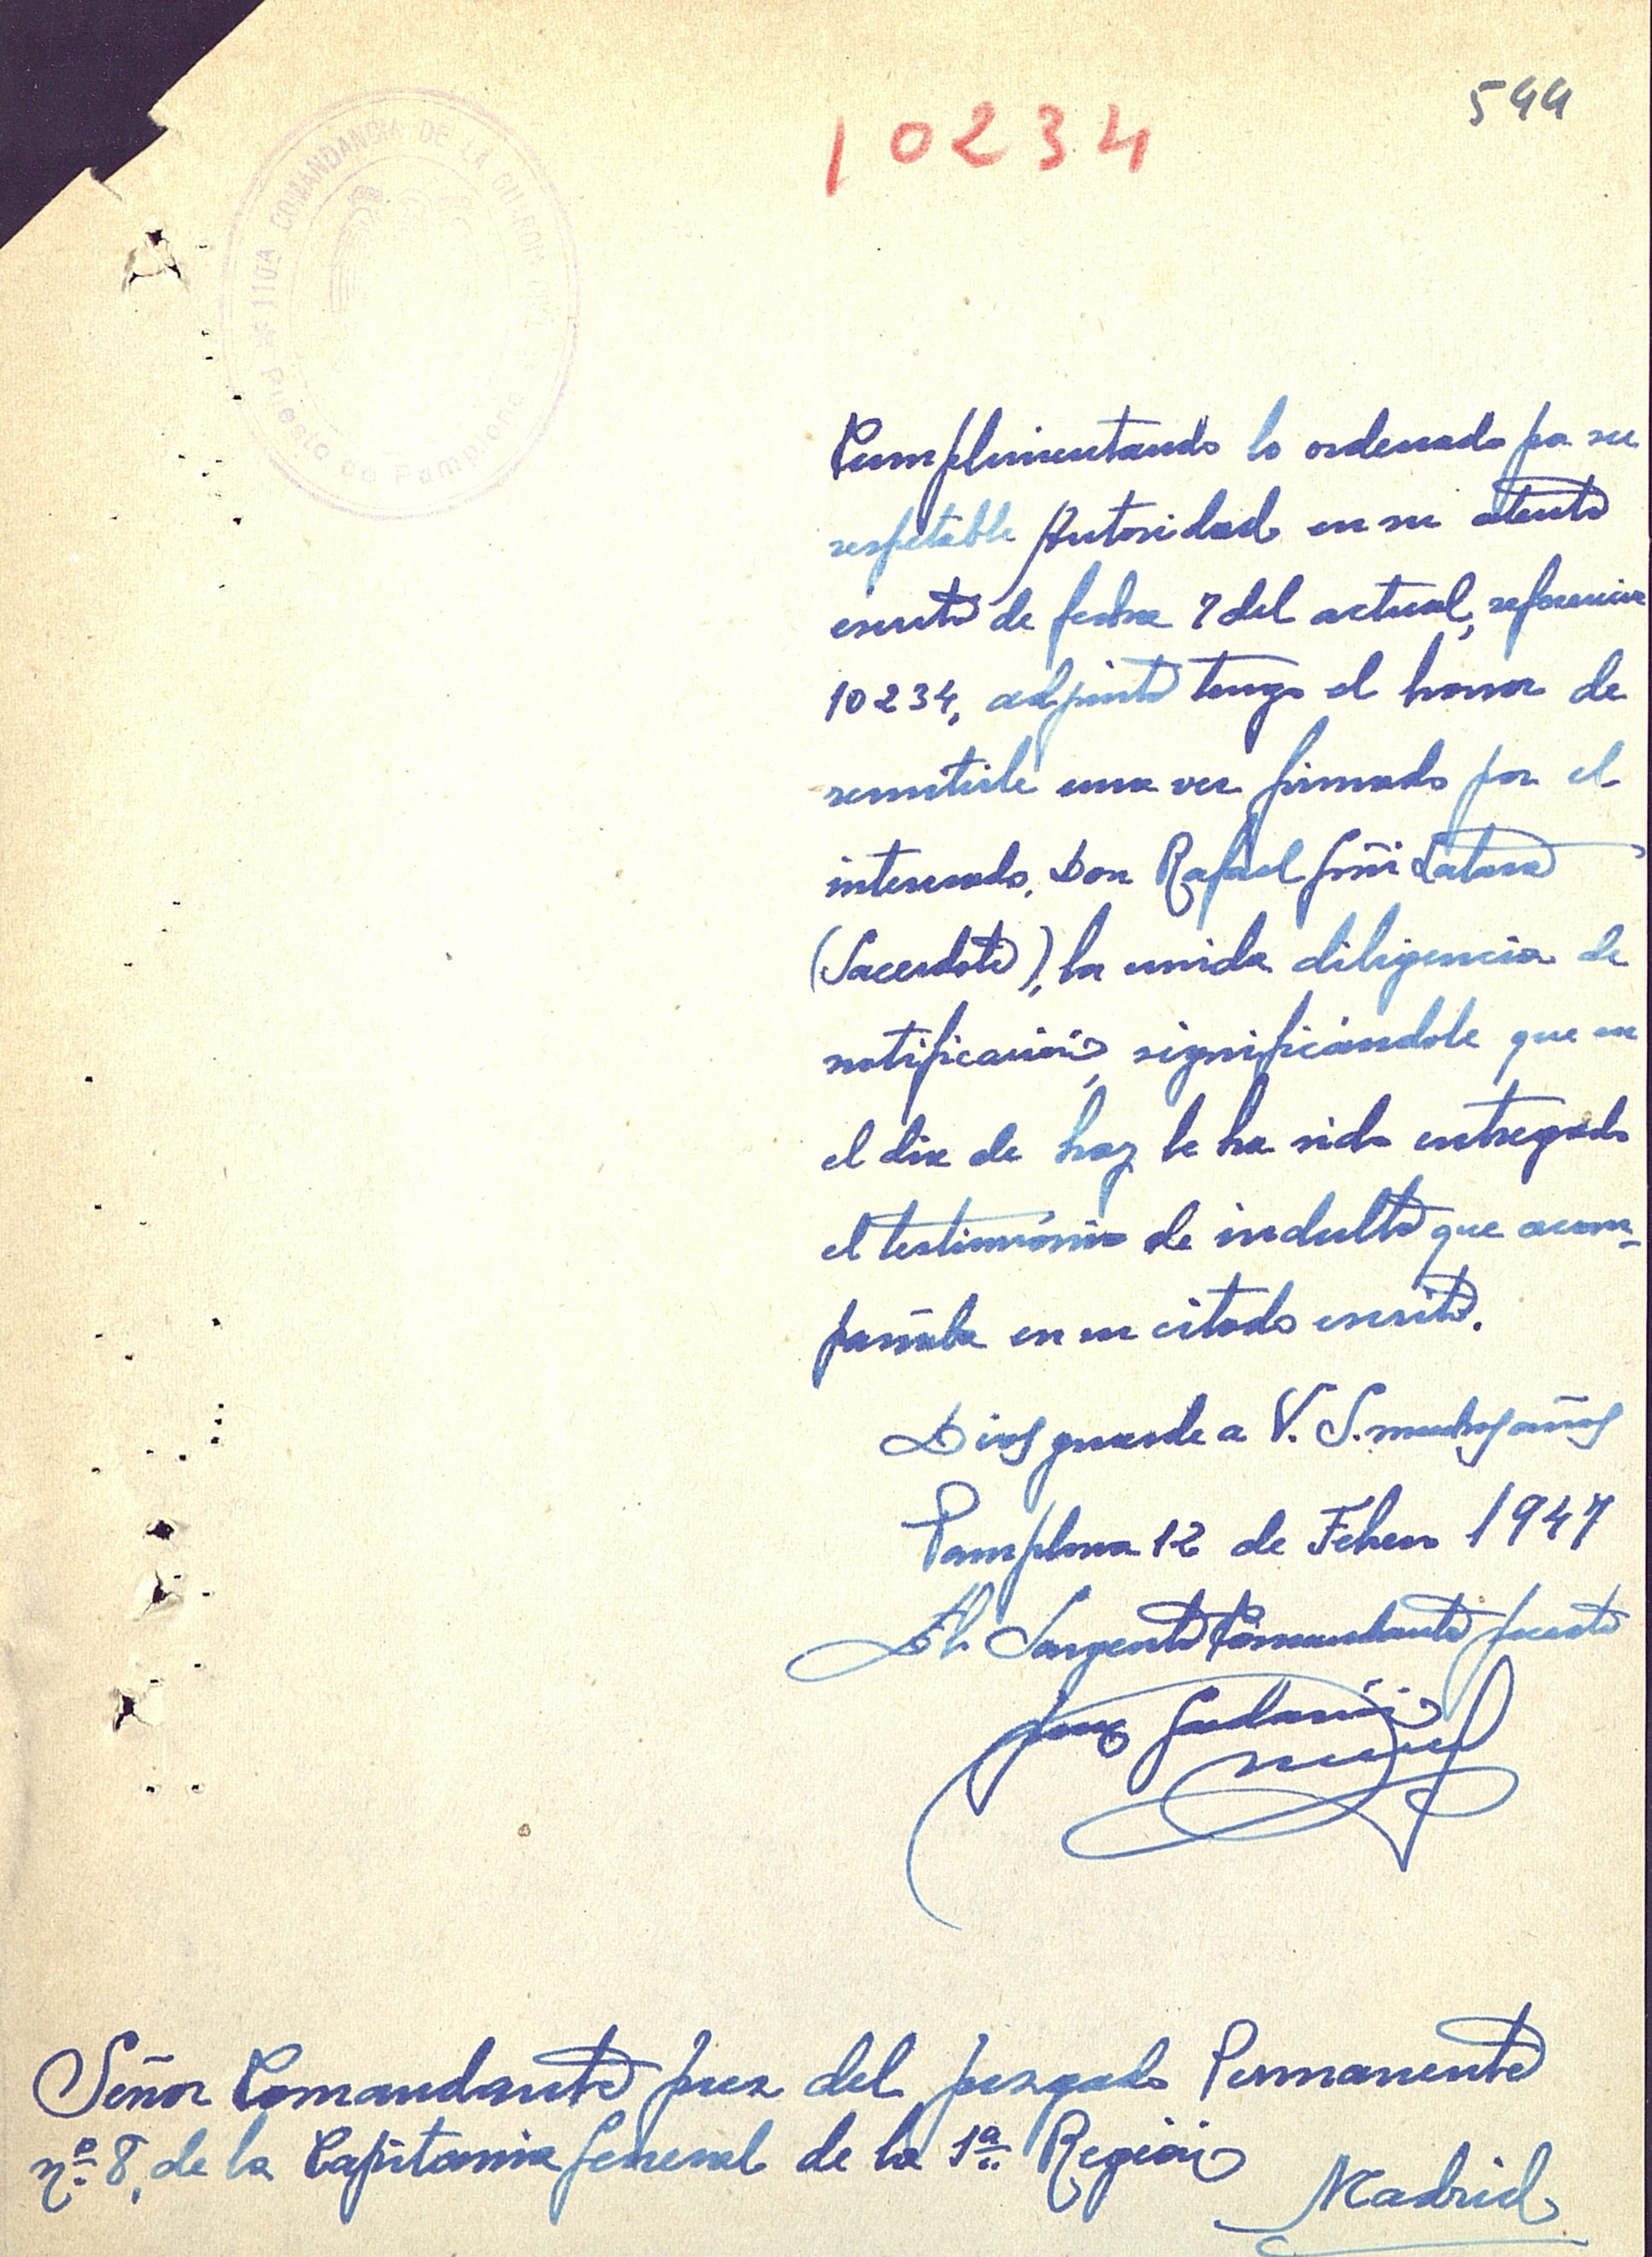 599
10234
110A COMANDANCIA DE LA GUARDIA CIVIL
Puesto de Pamplona
Cumplimentando lo ordenado por su
respetable Autoridad en su atento
escrito de fecha 7 del actual, referencia
10234, adjunto tengo el honor de
remitirle una vez firmado por el
interesado, Don Rafael Goñi
(Sacerdote), la unida diligencia de
notificación, significándole que en
el dia de hoy le ha sido entregado
el testimónio de indulto que acom-
pañaba en su citado escrito.
Dios guarde a V. S. muchos años
Pamplona 12 de Febero 1947
El Sargento Comandante puesto
Señor Comandante Juez del Juzgado Permanente
nº 8, de la Capitania General de la 1ª Región
Madrid